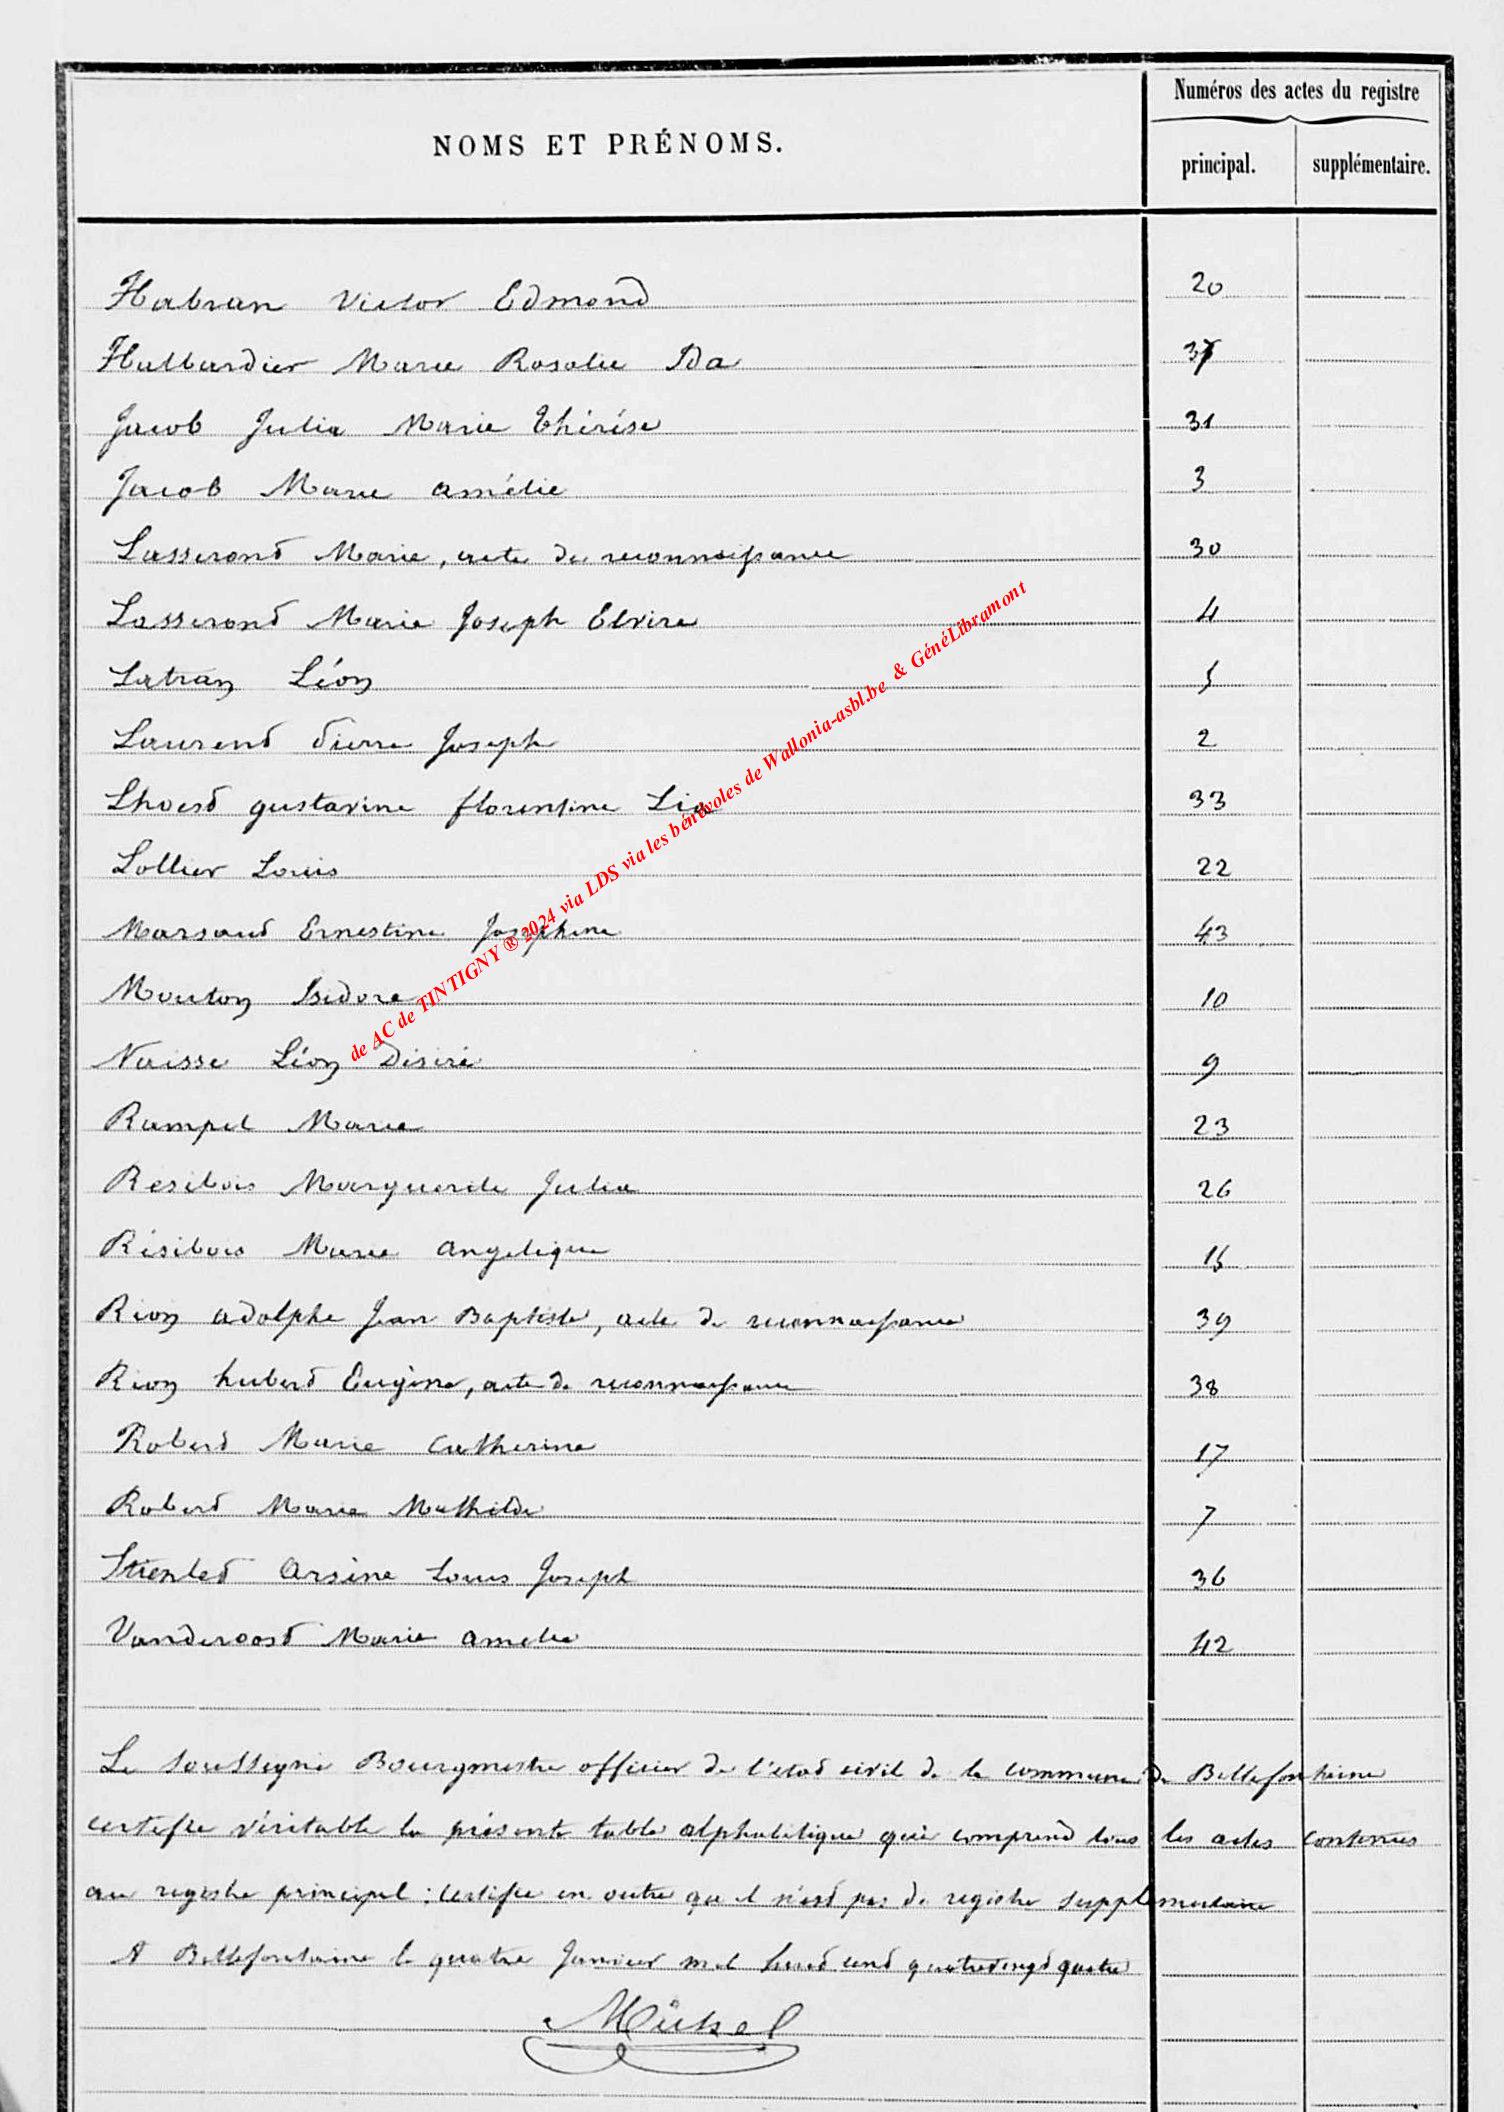 Numéros des actes du registre
NOMS ET PRÉNOMS.
principal. supplémentaire.
Habran Victor Edmond 20
Halbardier Marie Rosalie Ida 37
Jacob Julia Marie Thérèse 31
Jacob Marie amélie 3
Lasserond Marie, acte de reconnaissance 30
Lasserond Marie Joseph Elvire 4
Latran Léon 5
Laurend Pierre Joseph 2
Lhoesd gustavine florentine Lia 33
Lollier Louis 22
Marsaud Ernestine Josephine 43
Mouton Isidore 10
Naisse Léon Désiré 9
Rampel Marie 23
Resibois Marguerite Julia 26
Résibois Marie angelique 15
Rion adolphe Jean Baptiste, acte de reconnaissance 39
Rion hubert Eugène, acte de reconnaissance 38
Robert Marie Catherine 17
Robert Marie Mathilde 7
Arsène Louis Joseph 36
Vanderoost Marie amelie 42
Le soussigné Bourgmestre officier de l'état civil de la commune de Bellefontaine
certifie véritable la présente table alphabétique qui comprend tous les actes contenus
au registre principal ; certifie en outre qu'il n'est pas de registre supplementaire
A Bellefontaine le quatre Janvier mil huit cent quatrevingt quatre
Michel
de AC de TINTIGNY ® 2024 via LDS via les bénévoles de Wallonia-asbl.be & GénéLibramont